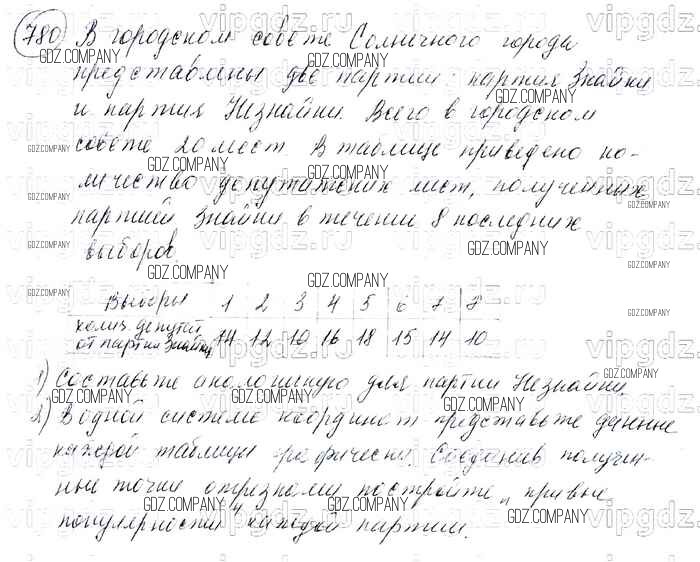 780 В городском совете Солнечного города
представлены две партии: партия Знайки
и партия Незнайки. Всего в городском
совете 20 мест. В таблице приведено ко-
личество депутатских мест, полученных
партией Знайки в течении 8 последних
выборов.
Выборы 1 2 3 4 5 6 7 8
колич. депутат. от партии Знайки 14 12 10 16 18 15 14 10
1) Составьте аналогичную для партии Незнайки.
2) В одной системе координат представьте данные
каждой таблицы графически. Соединив получен-
ные точки отрезками постройте „кривые
популярности" каждой партии.
GDZ.COMPANY
vipgdz.ru